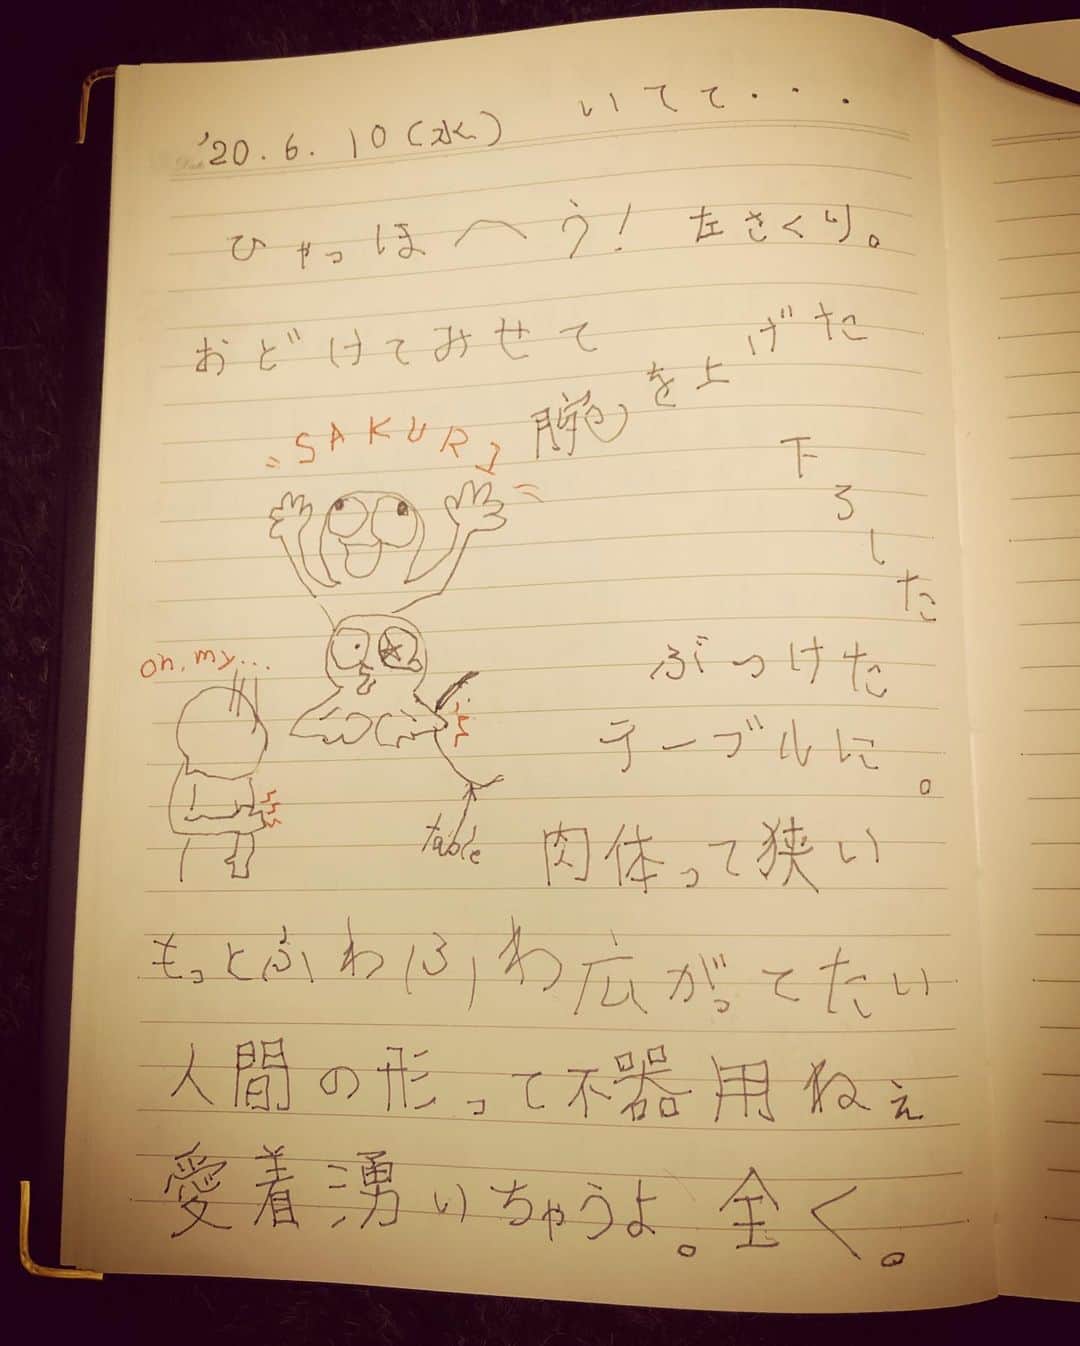 '20.6.10(水) いてて・・・
ひゃっほへう! 左さくり。
おどけてみせて
腕を上げた
下ろした
SAKURI
oh, my...
ぶつけた
テーブルに。
table
肉体って狭い
もっとふわふわ広がってたい
人間の形って不器用ねぇ
愛着湧いちゃうよ。全く。